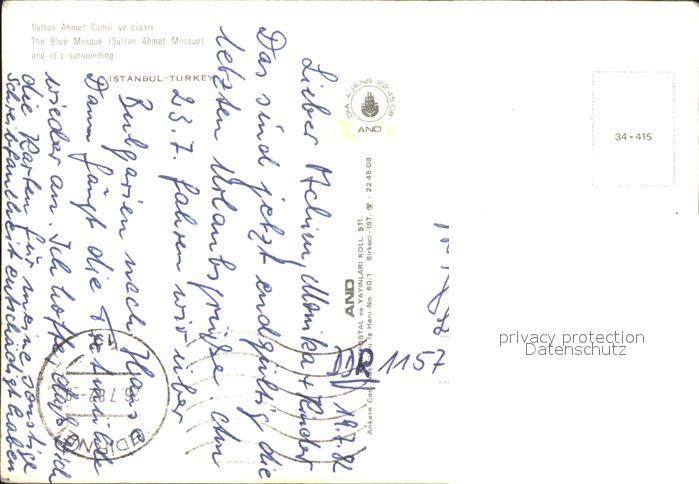 Sultan Ahmet Camii ve civarı
The Blue Mosque (Sultan Ahmet Mosque)
and it's surrounding
ISTANBUL-TURKEY
AND
34 - 415
AND
POSTAL ve YAYINLARI KOLL. ŞTİ.
Sirkeci-IST. ☎ : 22 45 08
19.7.82
Lieber Achim, Monika + Kinder
Das sind jetzt endgültig die
letzten Urlaubsgrüße. Am
23.7. fahren wir über
Bulgarien nach Hause
Dann fängt die
wieder an. Ich hoffe, daß ich
die Karten für meine sonstige
Schreibfaulheit entschädigt haben
DDR 1157
EDİRNE
privacy protection
Datenschutz